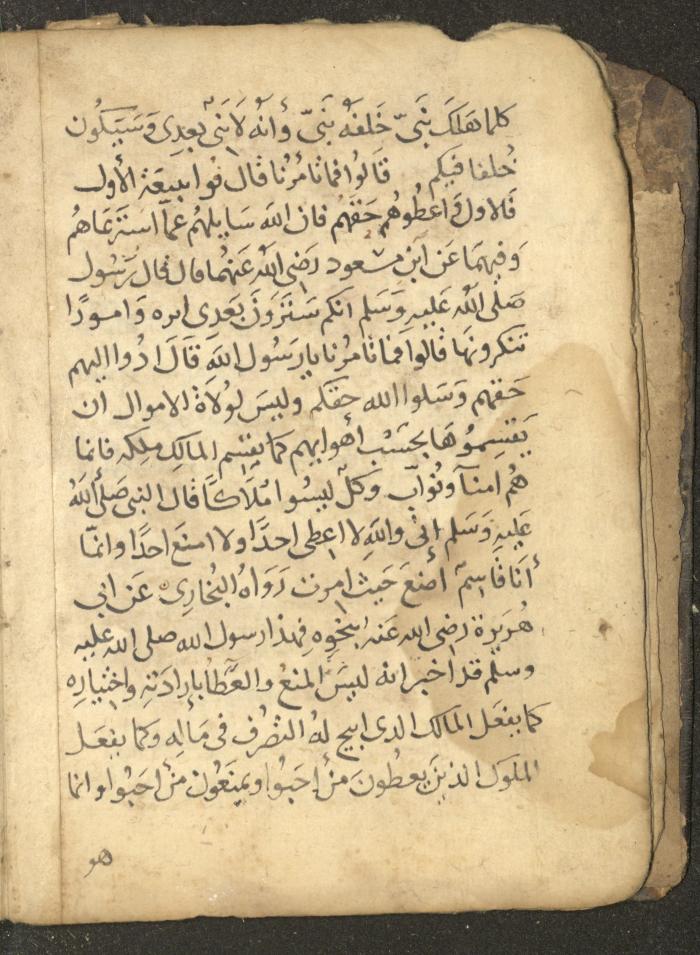 كلما هلك نبيّ خلفه نبيّ وأنه لا نبي بعدي وسيكون
خلفا فيكم قالوا فما تامرنا قال فوا ببيعة الأول
فالاول واعطوهم حقهم فان الله سايلهم عمّا استرعاهم
وفيهما عن ابن مسعود رضي الله عنهما قال قال رسول
صلى الله عليه وسلم انكم سترون بعدي اثره وامورًا
تنكرونها قالوا فما تامرنا يا رسول الله قال ادوا اليهم
حقهم وسلوا الله حقكم وليس لولاة الاموال ان
يقسموها بحسب أهوايهم كما يقسم المالك ملكه فانما
هم امنآ ونوابّ وكلّ ليسوا ملاكًا قال النبي صلى الله
عليه وسلم إني والله لا اعطي احدًا ولا امنع احدًا وانما
أنا قاسمٌ أضع حيث امرت رواه البخاري عن ابي
هريرة رضي الله عنه بنحوه فهذا رسول الله صلى الله عليه
وسلم قد اخبر انه ليس المنع والعطا بإرادته واختياره
كما يفعل المالك الذي ابيح له التصرف في ماله وكما يفعل
الملوك الذين يعطون من احبوا ويمنعون من احبوا وانما
هو